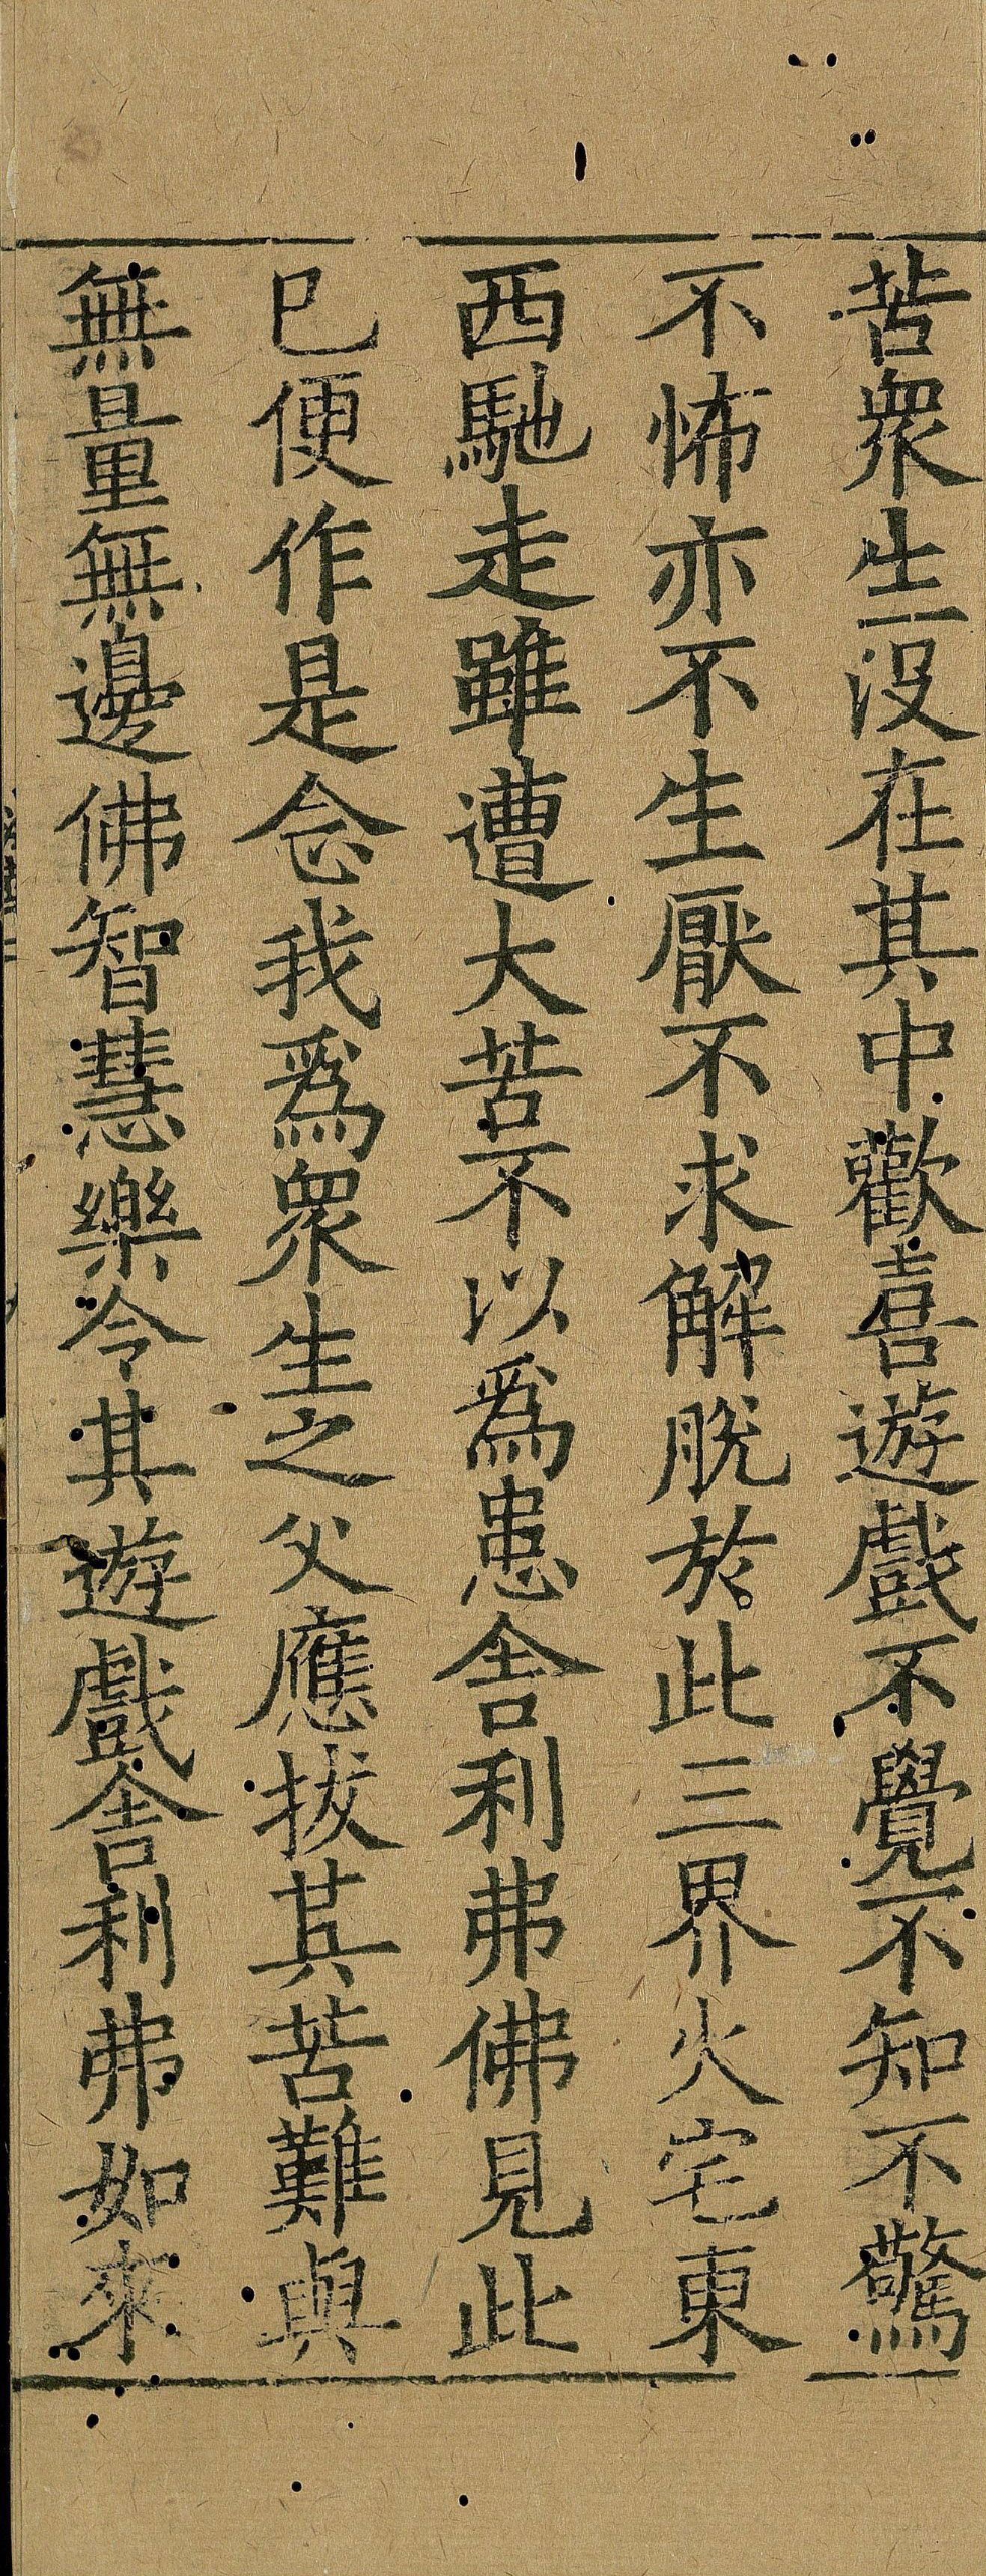 苦衆生沒在其中歡喜遊戲不覺不知不驚
不怖亦不生厭不求解脫於此三界火宅東
西馳走雖遭大苦不以爲患舍利弗佛見此
已便作是念我爲衆生之父應拔其苦難與
無量無邊佛智慧樂令其遊戲舍利弗如來